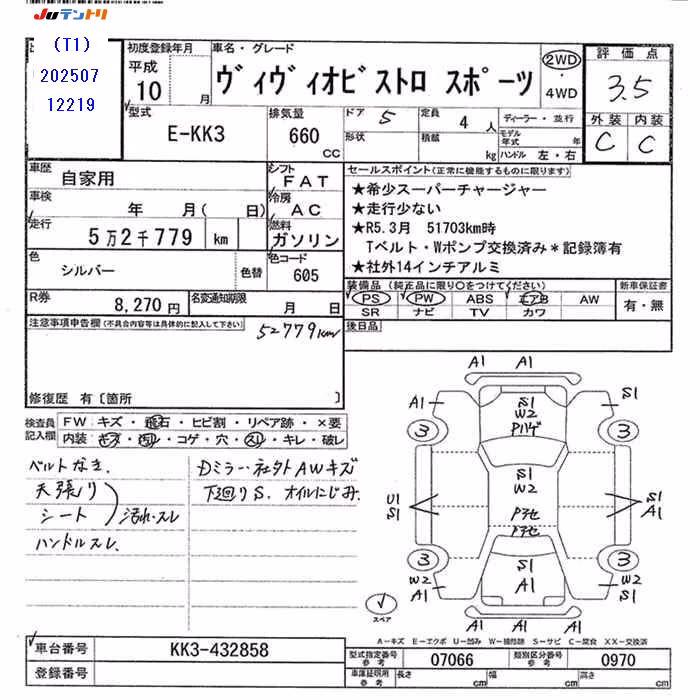 JUテントリ
(T1)
202507
12219
初度登録年月
平成
10
月
車名・グレード
ヴィヴィオビストロ スポーツ
2WD
・
4WD
評価点
3.5
外装 内装
C C
型式
E-KK3
排気量
660
CC
ドア 5
定員 4 人
形状
積載
kg
ディーラー・並行
モデル年式
年
ハンドル 左・右
車歴
自家用
シフト
FAT
車検
年 月( 日)
冷房
AC
走行
5万2千779 km
燃料
ガソリン
色
シルバー
色替
色コード
605
R券
8,270円
名変通知期限
月 日
セールスポイント(正常に機能するものに限ります)
★希少スーパーチャージャー
★走行少ない
★R5.3月 51703km時
Tベルト・Wポンプ交換済み*記録簿有
★社外14インチアルミ
装備品(純正品に限り〇をつけてください)
PS PW ABS エアB AW
SR ナビ TV カワ
新車保証書
有・無
後日品
注意事項申告欄(不具合内容等は具体的に記入して下さい)
52779km
修復歴 有〔箇所 〕
検査員記入欄
FW キズ・飛石・ヒビ割・リペア跡・×要
内装 キズ・汚れ・コゲ・穴・スレ・キレ・破レ
ベルトなき.
天張り
シート
汚れ・スレ
ハンドルスレ.
Dミラー・社外AWキズ
下廻りS. オイルにじみ.
A1 A1
A1
S1
W2
Pハゲ
S1
3 3
S1
W2
U1
S1
S1
A1
Pアセ
Pアセ
3 3
W2
A1
S1
A1
W2
A1
A1 A1
スペア
A-キズ E-エクボ U-凹み W-補修跡 S-サビ C-腐食 XX-交換済
車台番号
KK3-432858
登録番号
型式指定番号
参考
07066
類別区分番号
参考
0970
車庫証明用
参考
長さ
cm
幅
cm
高さ
cm